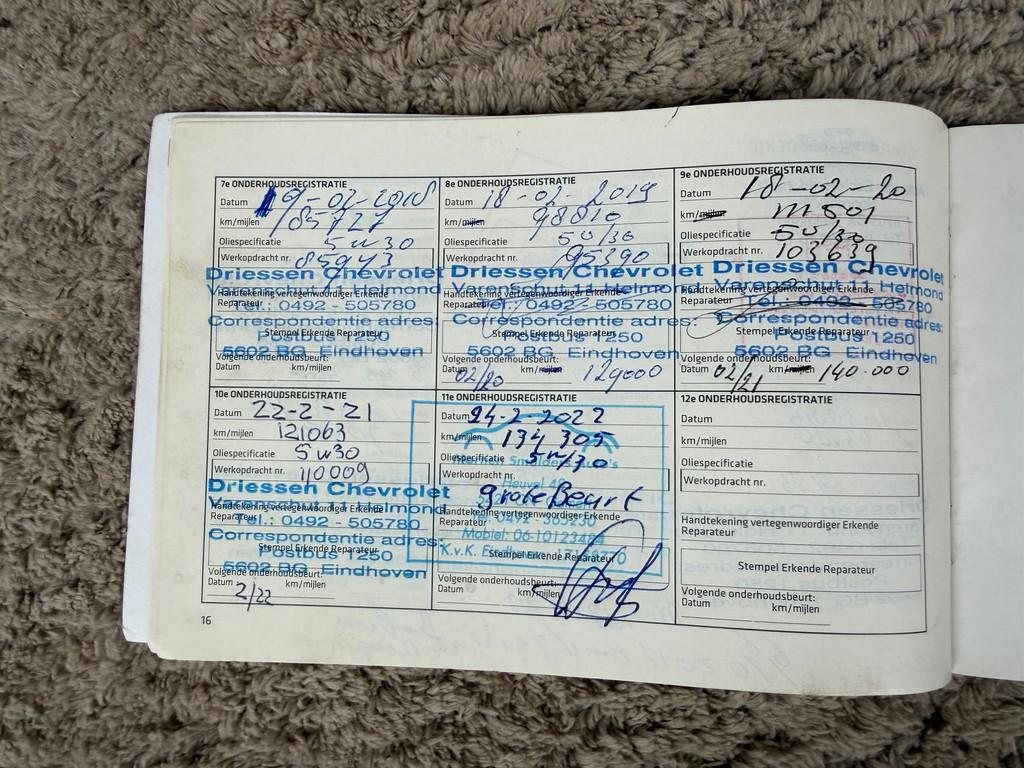 7e ONDERHOUDSREGISTRATIE
Datum 19-02-2018
km/mijlen 85727
Oliespecificatie 5w30
Werkopdracht nr. 85943
Driessen Chevrolet
Varenschut 11 Helmond
Handtekening vertegenwoordiger Erkende
Reparateur
Tel.: 0492 - 505780
Correspondentie adres:
Stempel Erkende Reparateur
Postbus 1250
5602 BG Eindhoven
Volgende onderhoudsbeurt:
Datum km/mijlen
8e ONDERHOUDSREGISTRATIE
Datum 18-02-2019
km/mijlen 98810
Oliespecificatie 5w/30
Werkopdracht nr. 95390
Driessen Chevrolet
Varenschut 11 Helmond
Handtekening vertegenwoordiger Erkende
Reparateur
Tel.: 0492 - 505780
Correspondentie adres:
Stempel Erkende Reparateur
Postbus 1250
5602 BG Eindhoven
Volgende onderhoudsbeurt:
Datum 02/20 km/mijlen 129000
9e ONDERHOUDSREGISTRATIE
Datum 18-02-20
km/mijlen 111501
Oliespecificatie 5w/30
Werkopdracht nr. 103639
Driessen Chevrolet
Varenschut 11 Helmond
Handtekening vertegenwoordiger Erkende
Reparateur
Tel.: 0492 - 505780
Correspondentie adres:
Stempel Erkende Reparateur
Postbus 1250
5602 BG Eindhoven
Volgende onderhoudsbeurt:
Datum 02/21 km/mijlen 140.000
10e ONDERHOUDSREGISTRATIE
Datum 22-2-21
km/mijlen 121063
Oliespecificatie 5w30
Werkopdracht nr. 110009
Driessen Chevrolet
Varenschut 11 Helmond
Handtekening vertegenwoordiger Erkende
Reparateur
Tel.: 0492 - 505780
Correspondentie adres:
Stempel Erkende Reparateur
Postbus 1250
5602 BG Eindhoven
Volgende onderhoudsbeurt:
Datum 2/22 km/mijlen
11e ONDERHOUDSREGISTRATIE
Datum 24-2-2022
km/mijlen 134305
Oliespecificatie 5w/30
Werkopdracht nr.
Heuvel
grote Beurt
Handtekening vertegenwoordiger Erkende
Reparateur
Mobiel: 06-10123484
Stempel Erkende Reparateur
K.v.K.
Volgende onderhoudsbeurt:
Datum km/mijlen
12e ONDERHOUDSREGISTRATIE
Datum
km/mijlen
Oliespecificatie
Werkopdracht nr.
Handtekening vertegenwoordiger Erkende
Reparateur
Stempel Erkende Reparateur
Volgende onderhoudsbeurt:
Datum km/mijlen
16